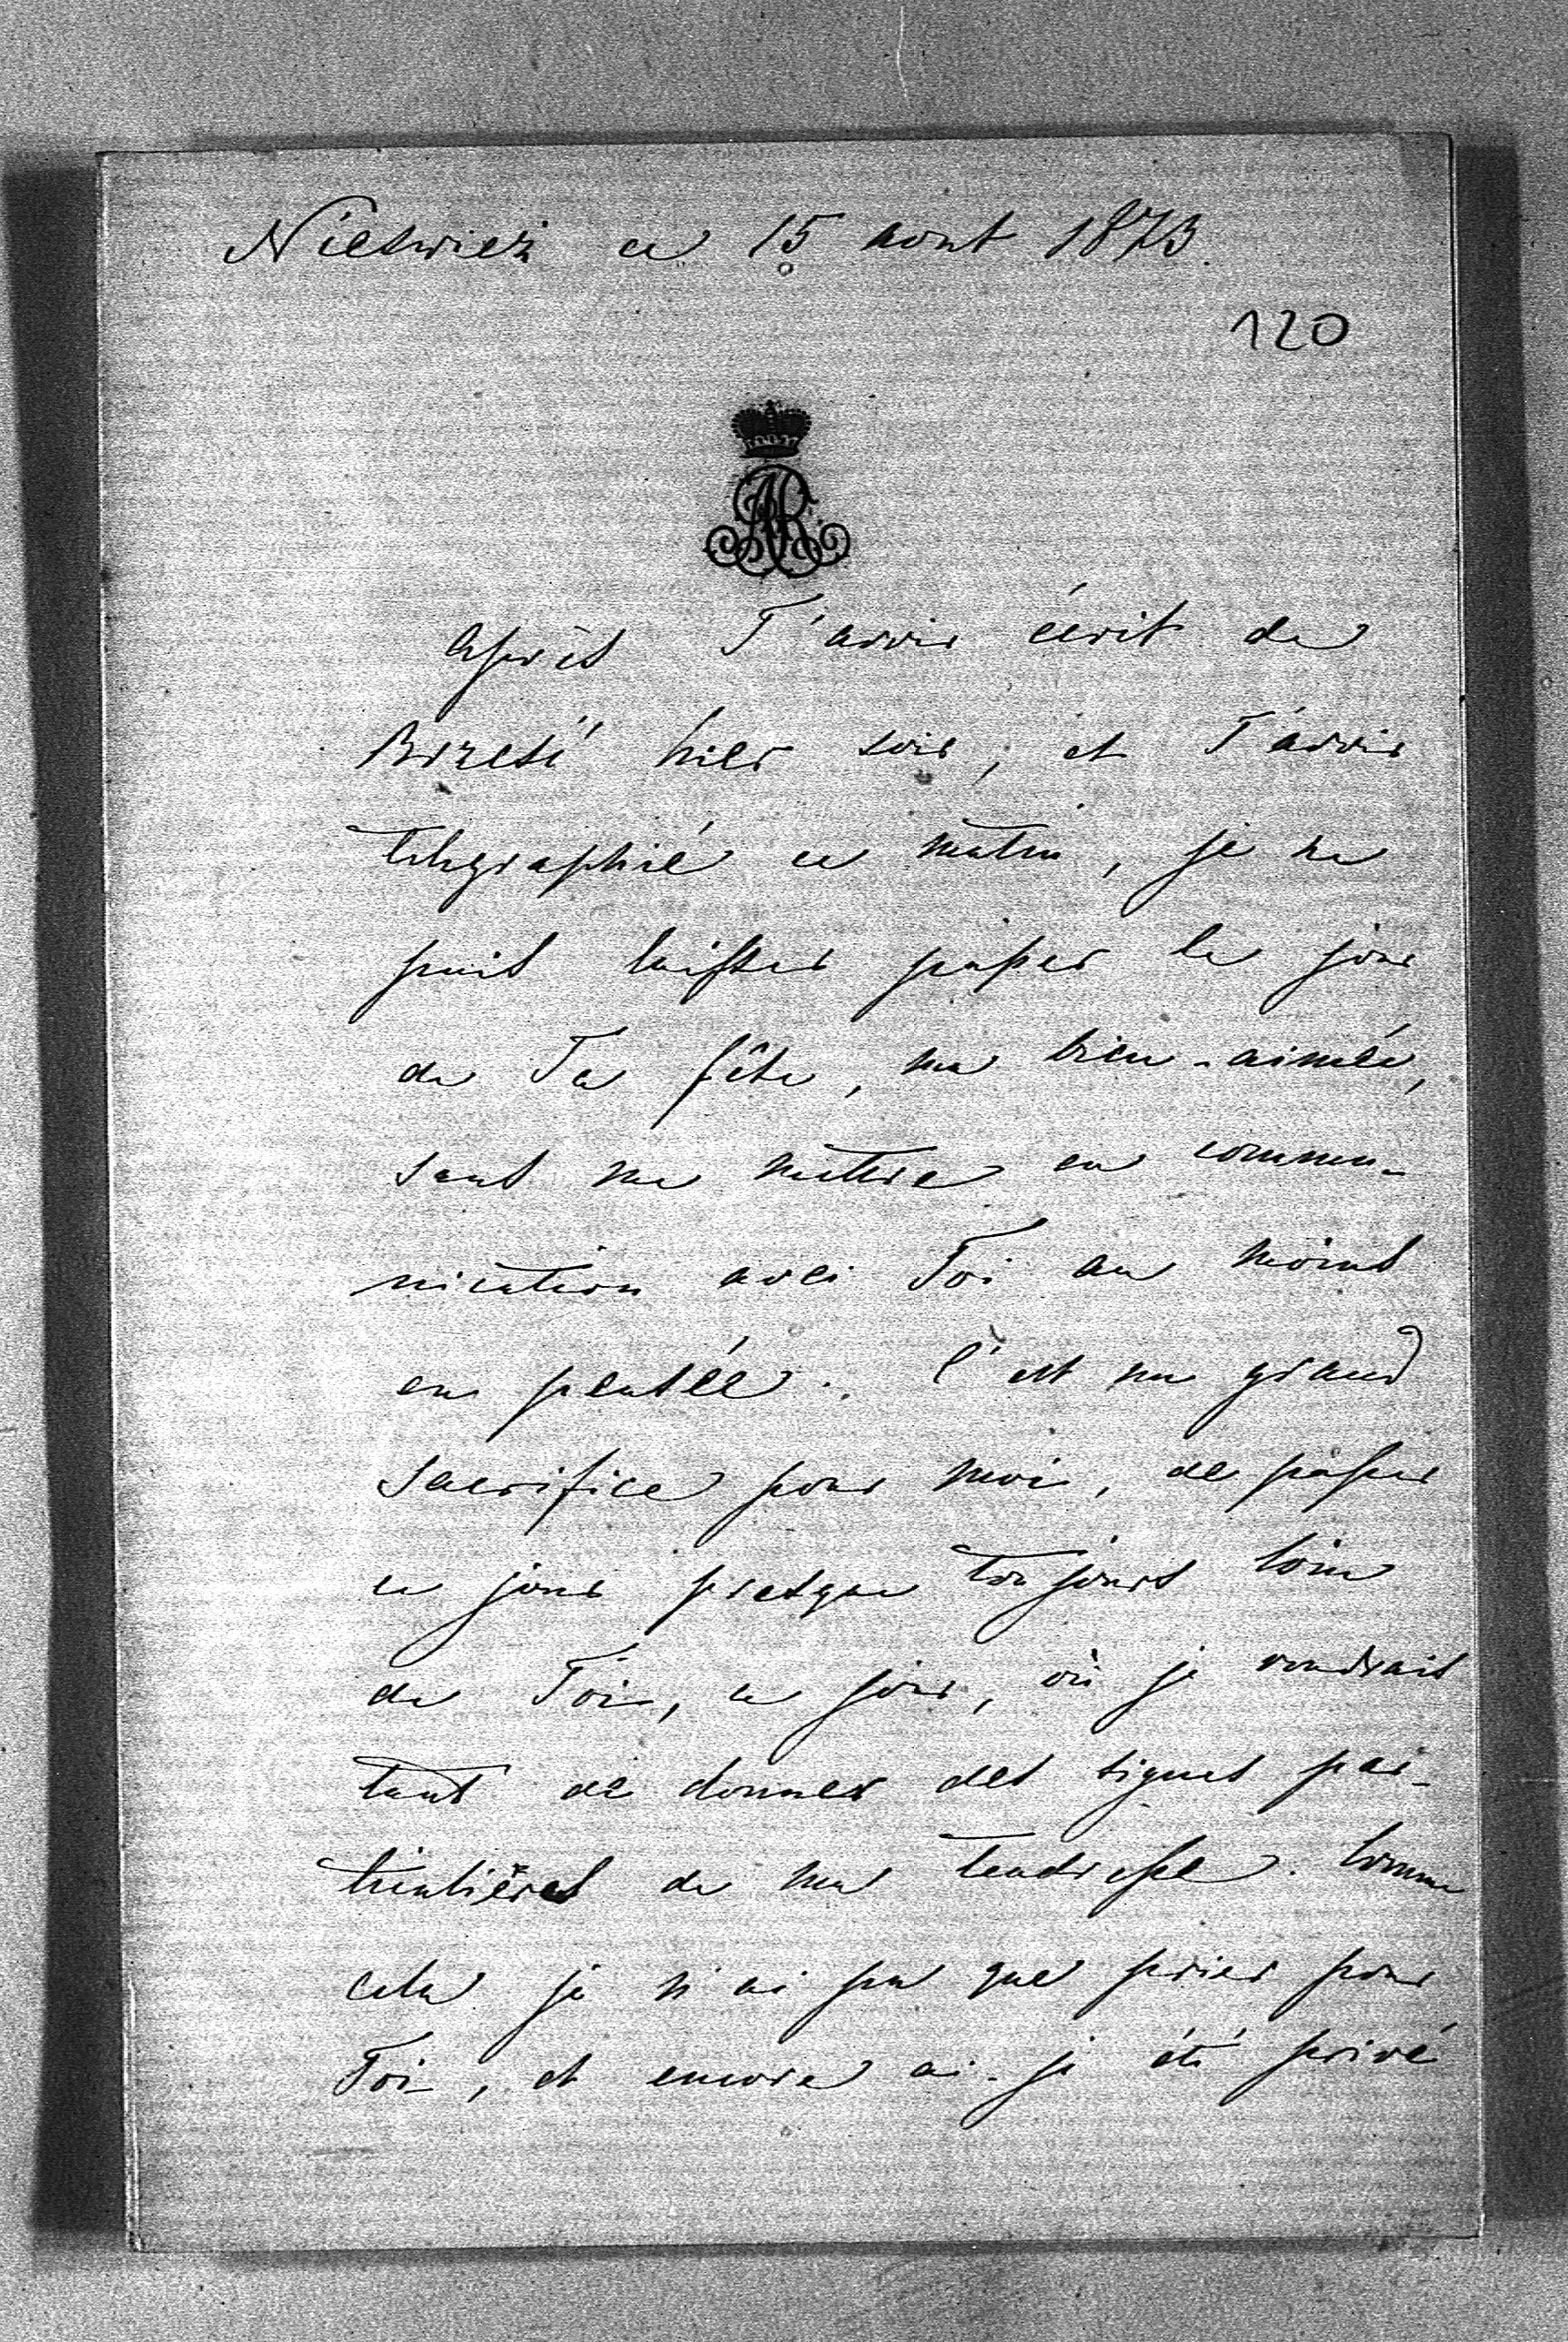 Nieswież ce 15 aout 1873.
120
AR
Après T'avoir écrit de
Brześć hier soir, et T'avoir
télégraphié ce matin, je ne
puis laisser passer le jour
de Ta fête, ma bien-aimée,
sans me mettre en commu-
nication avec Toi au moins
en pensée. C'est un grand
sacrifice pour moi, de passer
ce jour presque toujours loin
de Toi, ce jour, où je voudrais
tant de donner des signes par-
ticulières de ma tendresse. Comme
cela je n'ai pu que prier pour
Toi, et encore ai-je été privé